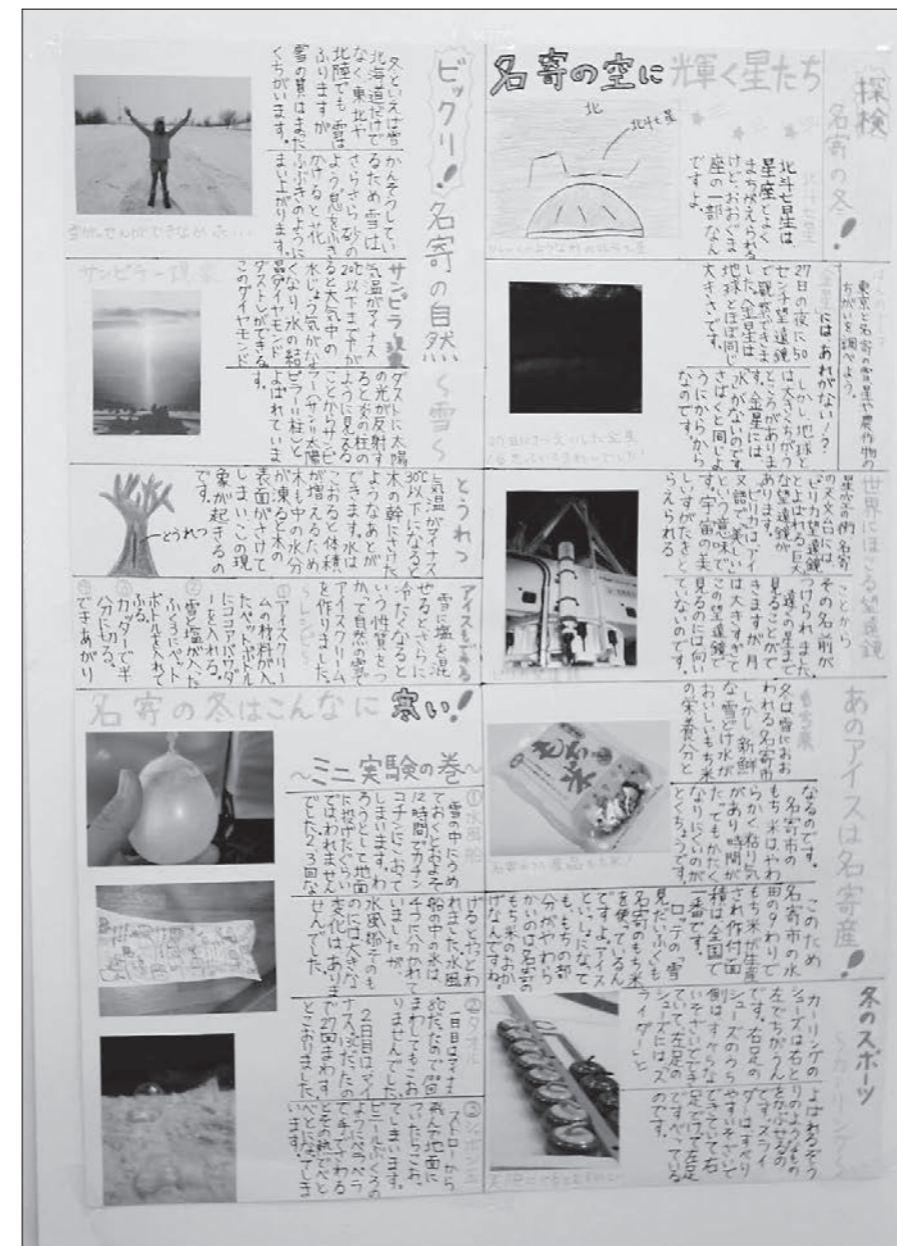 探検
名寄の冬!
東京と名寄の雪、星や農作物の
ちがいを調べよう。
名寄の空に輝く星たち
北斗七星
北
北斗七星
北斗七星は、
星座とよく
まちがえられる
けど、おおぐま
座の一部なん
ですよ。
金星にはあれがない!?
27日の夜に50
センチ望遠鏡
で観察できま
した。金星は
地球とほぼ同じ
大きさです。
しかし、地球と
は大きくちがう
ところがありま
す。金星には
「水」がないのです。
さばくと同じよ
うにからから
なのです。
世界にほこる望遠鏡
星空の街、名寄
の天文台には、
ピリカ望遠鏡
とよばれる巨大
な望遠鏡が
あります。
ピリカは、アイ
ヌ語で「美しい」
という意味で
す。宇宙の美
しいすがたをと
らえられる
ことから
その名前が
つけられました。
遠くの星まで
見ることがで
きますが、月
は大きすぎて
この望遠鏡で
見るのには向い
ていないのです。
あのアイスは名寄産!
もち米
冬は雪におお
われる名寄市
しかし新鮮
な雪どけ水が
おいしいもち米
の栄養分と
なるのです。
名寄市の
もち米はやわ
らかく粘り気
があり時間が
たってもかたく
なりにくいのが
とくちょうです。
このため
名寄市の水
田の9わりで
もち米が生産
され作付面
積は全国で
一番です。
ロッテの「雪
見だいふく」も
名寄のもち米
を使っているん
ですよ。アイス
といっしょになって
も、もちの部
分がやわら
かいのは名寄の
もち米のおか
げなんですね。
冬のスポーツ
〜カーリング〜
カーリングの
シューズは右と
左でちがうん
です。右足の
シューズのうら
側はすべらな
いそざいででき
ていて、左足の
シューズには「ス
ライダー」と
よばれるぞう
りのようなもの
をかぶせるの
です。スライ
ダーは、すべり
やすいそざいで
できていて右
足でけって左足
ですべっている
のです。
ビックリ!名寄の自然
〜雪〜
冬といえば雪
北海道だけで
なく東北や
北陸でも雪は
ふりますが
雪の質はまった
くちがいます。
かんそうしてい
るため雪は
さらさら砂の
よう。息をふき
かけると花
ふぶきのように
まい上がります。
サンピラー現象
サンピラー現象
気温がマイナス
20℃以下まで下が
ると大気中の
水じょう気がな
くなり氷の結
晶「ダイヤモンド
ダスト」ができる
このダイヤモンド
ダストに太陽
の光が反射す
ると炎の柱の
ように見える
ことから「サンピ
ラー」(サン=太陽
ピラー=柱)と
よばれていま
す。
とうれつ
気温がマイナス
30℃以下になると
木の幹にさけた
ようなあとが
できます。水は
こおると体積
が増えるため
木も中の水分
が凍ると木の
表面がさけて
しまいこの現
象が起きるの
です。
とうれつ
アイスもできる
雪に塩を混
ぜるとさらに
冷たくなると
いう性質をつ
かって自然の雪で
アイスクリーム
を作りました。
〜レシピ〜
①アイスクリー
ムの材料が入っ
たペットボトル
にココアパウダ
ーを入れる。
②雪と塩が入った
ふくろにペット
ボトルを入れて
ふる。
③カッターで半
分に切る。
できあがり
名寄の冬はこんなに寒い!
〜ミニ実験の巻〜
①水風船
雪の中にうめ
ておくとおよそ
12時間でカチン
コチンにこおって
しまいます。わ
ろうとして地面
に投げたぐらい
ではわれません
でした。2、3回な
げるとやっとわ
れました。水風
船の中の水は
4つに分かれて
いましたが、
水風船そのも
のには大きな
変化はありま
せんでした。
②タオル
1日目はマイナス
8℃だったので
まわしてもこお
りませんでした。
2日目はマイ
ナス
で27回まわす
とこおりました。
③シャボン玉
ストローから
飛んで地面に
ついたらこお
てしまいます。
ビニールぶくろの
ようにペラペラ
で手でさわる
います。